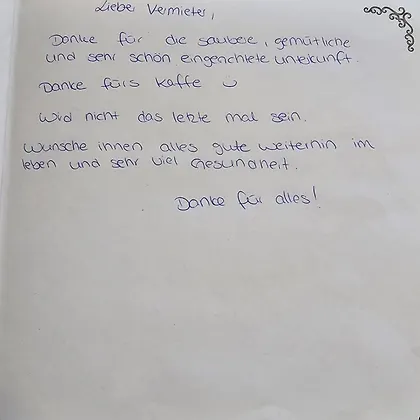 Lieber Vermieter,
Danke für die saubere, gemütliche
und sehr schön eingerichtete unterkunft.
Danke fürs Kaffe ☺
Wird nicht das letzte mal sein.
Wünsche ihnen alles gute weiterhin im
leben und sehr viel Gesundheit.
Danke für alles!